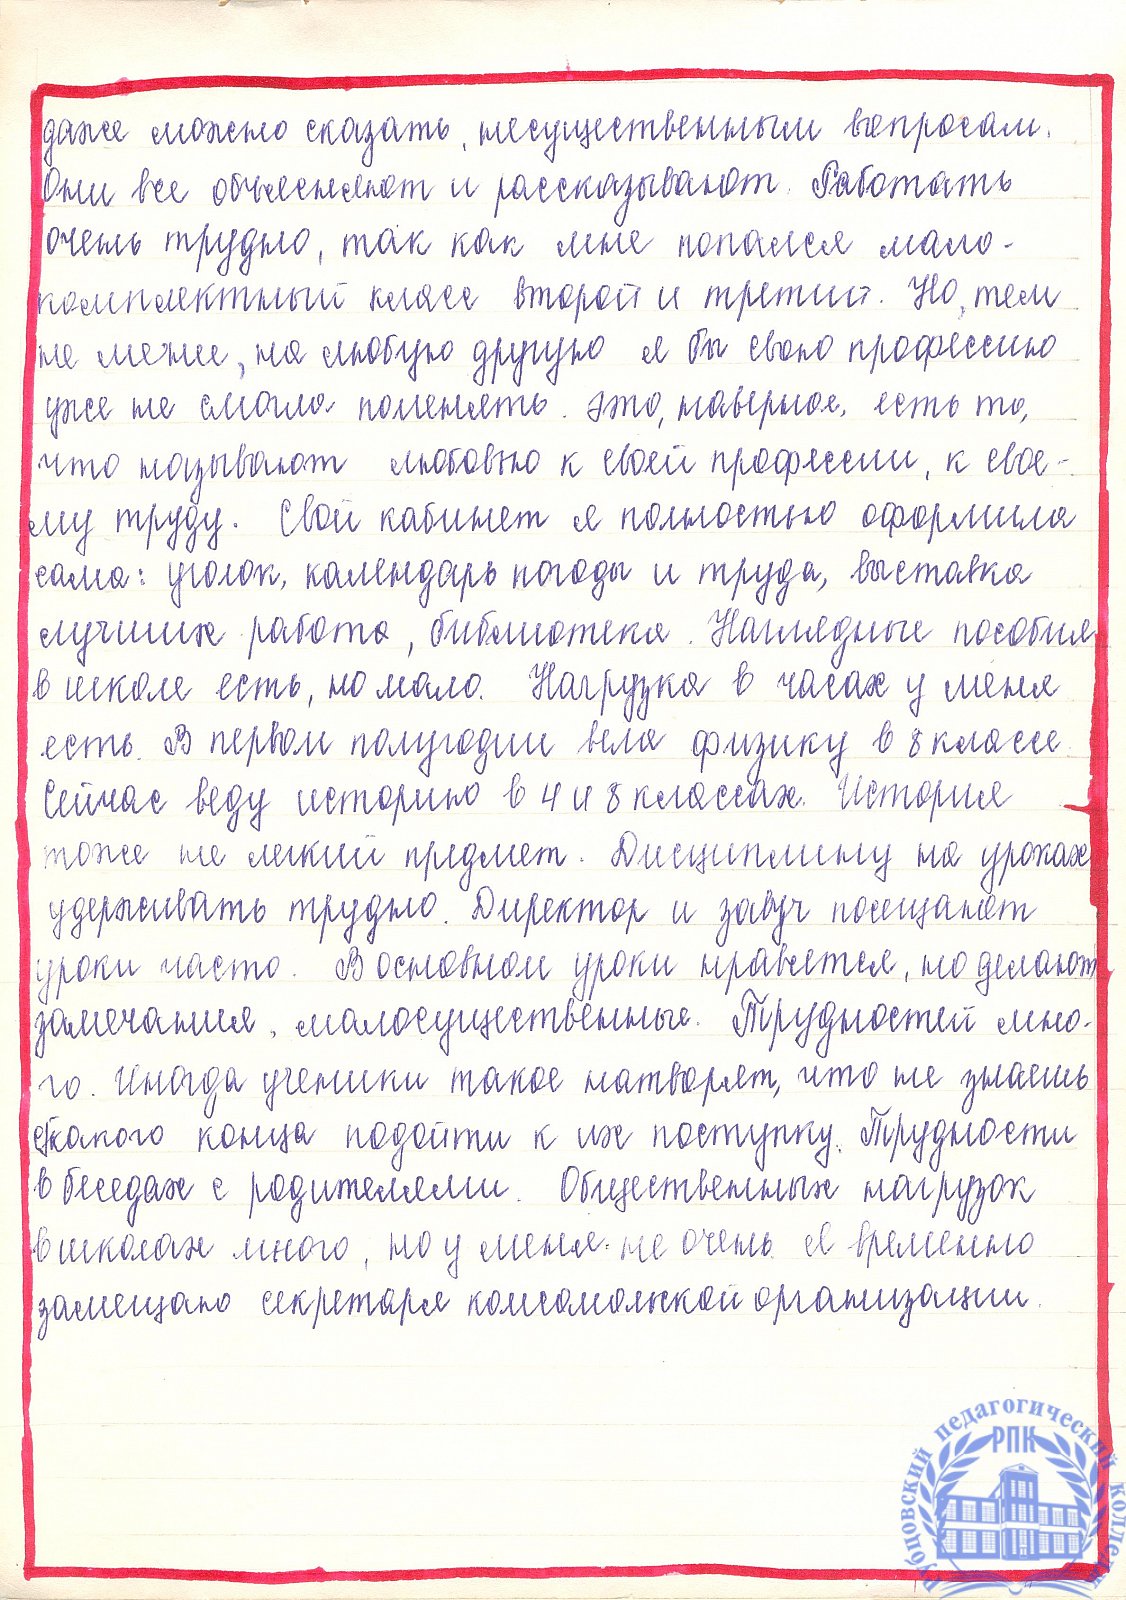 даже можно сказать, несущественным вопросам.
Они все объясняют и рассказывают. Работать
очень трудно, так как мне попался мало-
комплектный класс второй и третий. Но, тем
не менее, на любую другую я бы свою профессию
уже не смогла поменять. Это, наверное, есть то,
что называют любовью к своей профессии, к свое-
му труду. Свой кабинет я полностью оформила
сама: уголок, календарь погоды и труда, выставка
лучших работа, библиотека. Наглядные пособия
в школе есть, но мало. Нагрузка в часах у меня
есть. В первом полугодии вела физику в 8 классе.
Сейчас веду историю в 4 и 8 классах. История
тоже не легкий предмет. Дисциплину на уроках
удерживать трудно. Директор и завуч посещают
уроки часто. В основном уроки нравятся, но делают
замечания, малосущественные. Трудностей мно-
го. Иногда ученики такое натворят, что не знаешь
с какого конца подойти к их поступку. Трудности
в беседах с родителями. Общественных нагрузок
в школах много, но у меня не очень. Я временно
замещаю секретаря комсомольской организации.
Рубцовский педагогический колледж
РПК